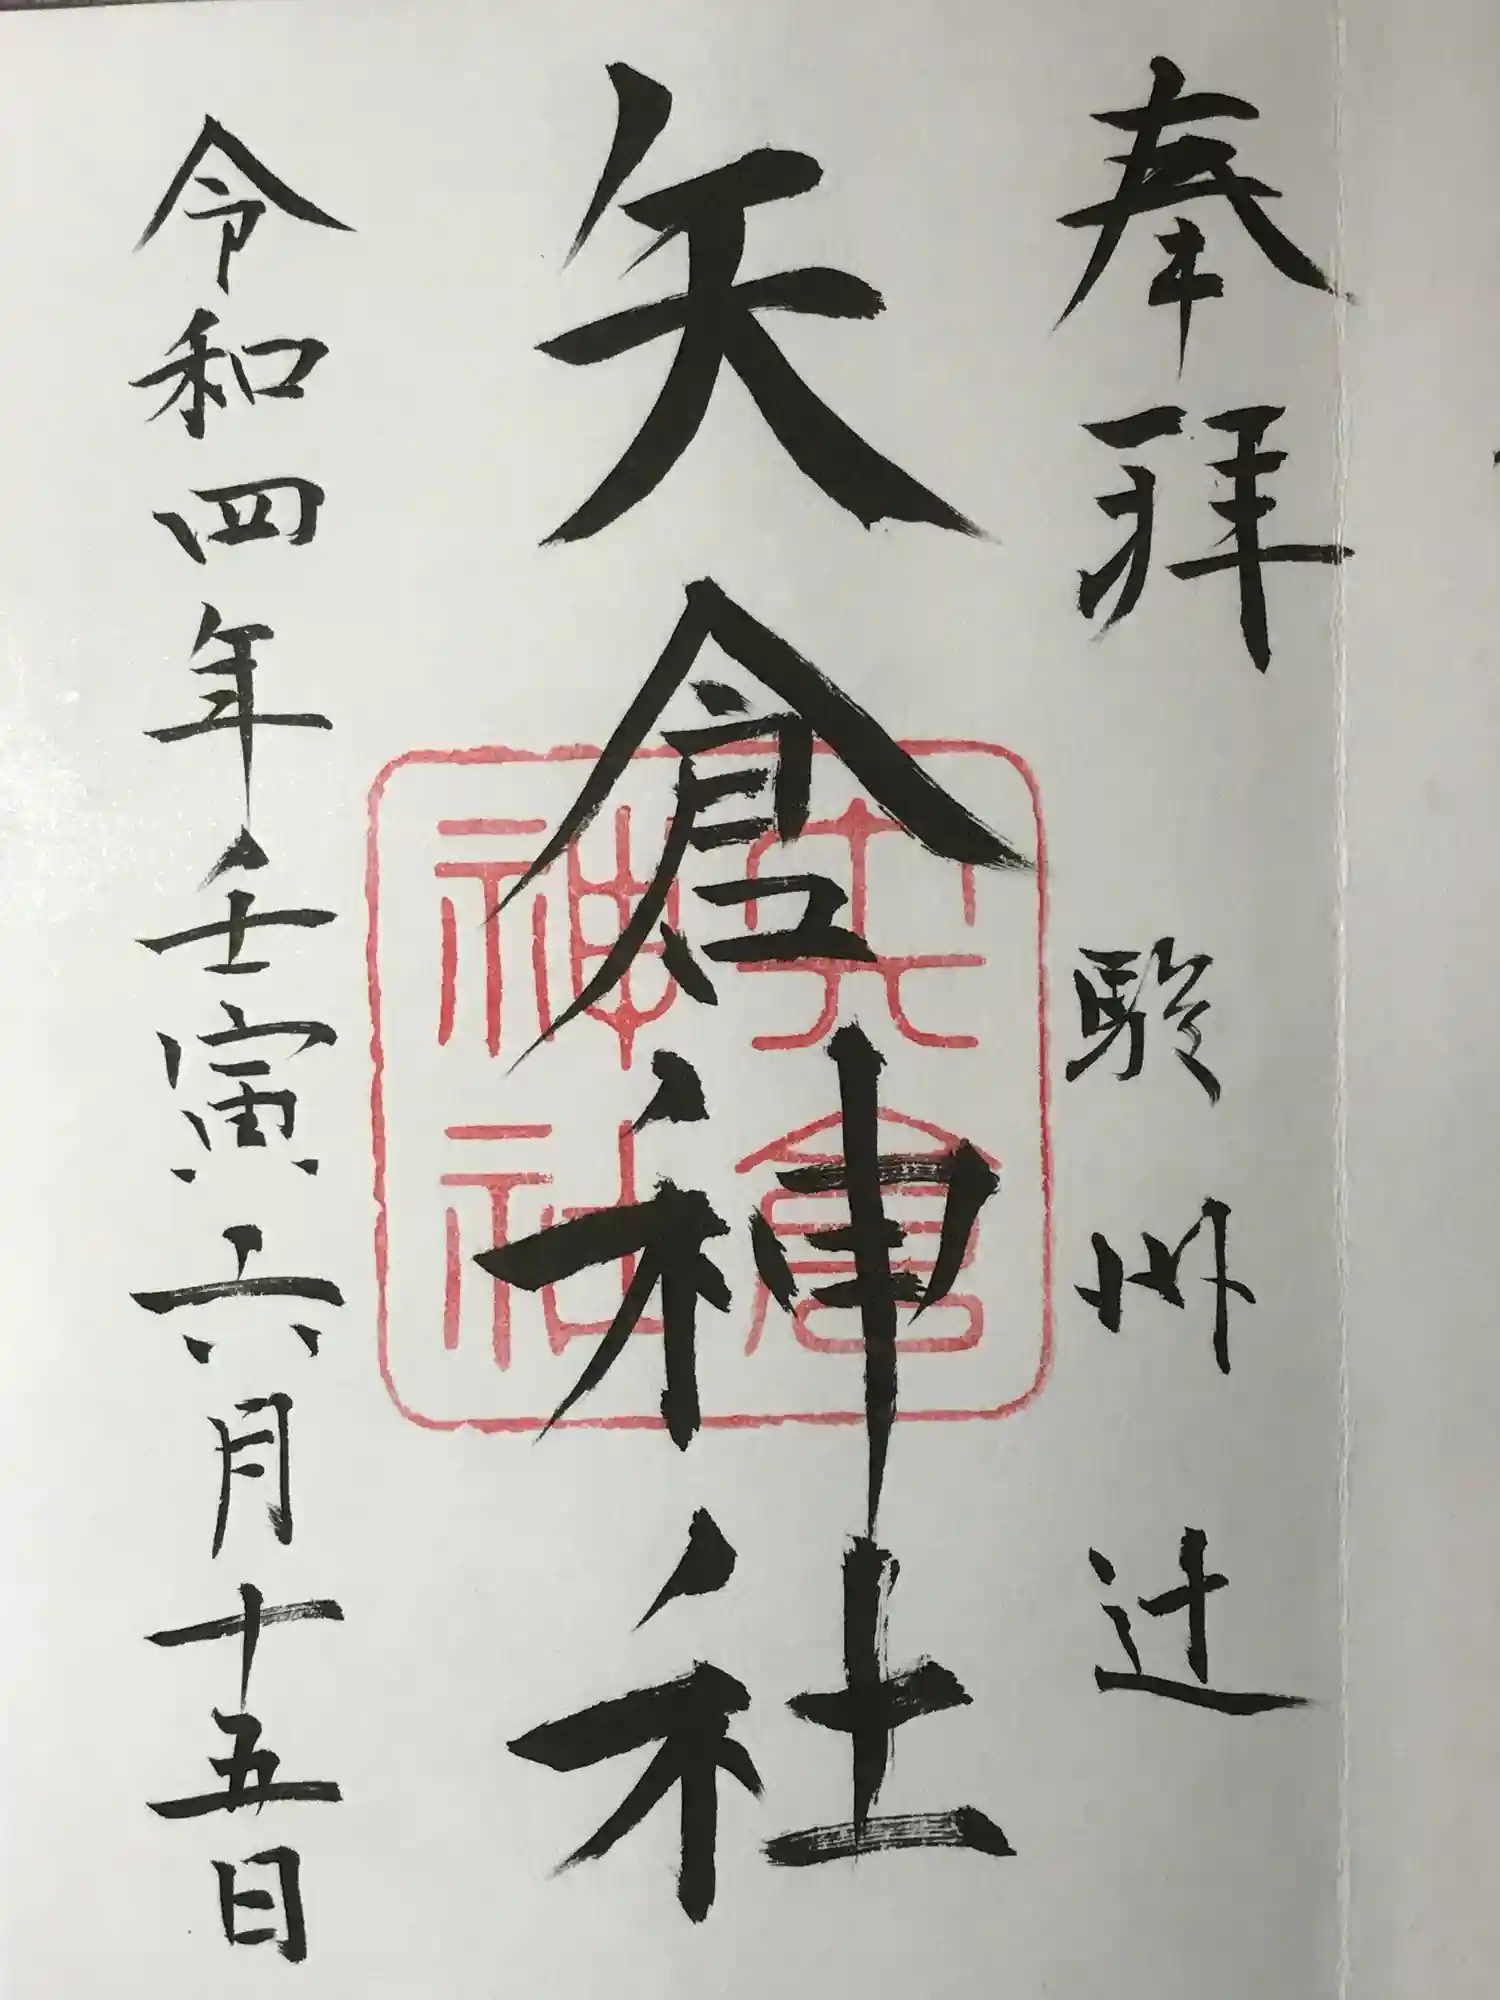 奉拝 駿州辻
矢倉神社
令和四年壬寅六月十五日
矢倉
神社